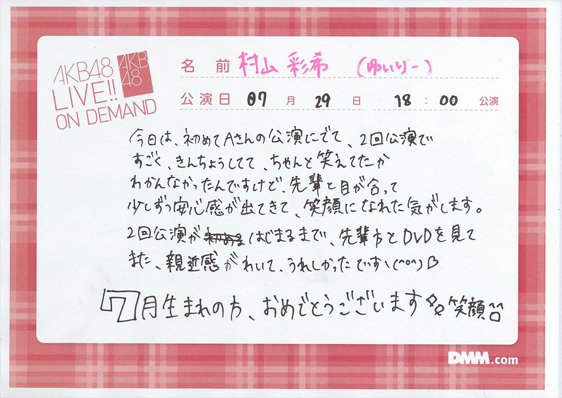 AKB48
LIVE!!
ON DEMAND
AKB
48
名 前 村山 彩希 (ゆいりー)
公演日 07 月 29 日 18 : 00 公演
今日は、初めてAさんの公演にでて、2回公演で
すごく、きんちょうしてて、ちゃんと笑えてたか
わかんなかったんですけど、先輩と目が合って
少しずつ安心感が出てきて、笑顔になれた気がします。
2回公演がはじまるまで、先輩方とDVDを見て
また、親近感がわいて、うれしかったですヽ(^o^)
7月生まれの方、おめでとうございます 笑顔
DMM.com